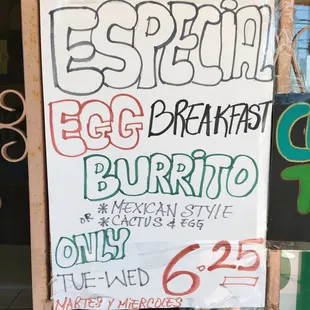 ESPECIAL
EGG BREAKFAST
BURRITO
* MEXICAN STYLE
OR * CACTUS & EGG
ONLY
TUE-WED 6.25
MARTES Y MIERCOLES